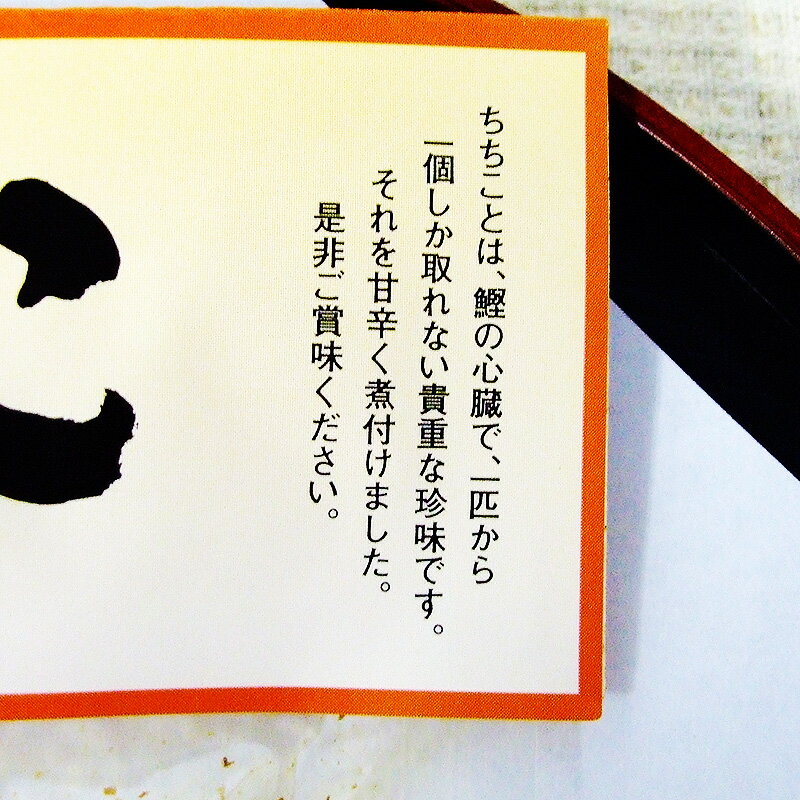 ちちことは、鰹の心臓で、一匹から
一個しか取れない貴重な珍味です。
それを甘辛く煮付けました。
是非ご賞味ください。
こ